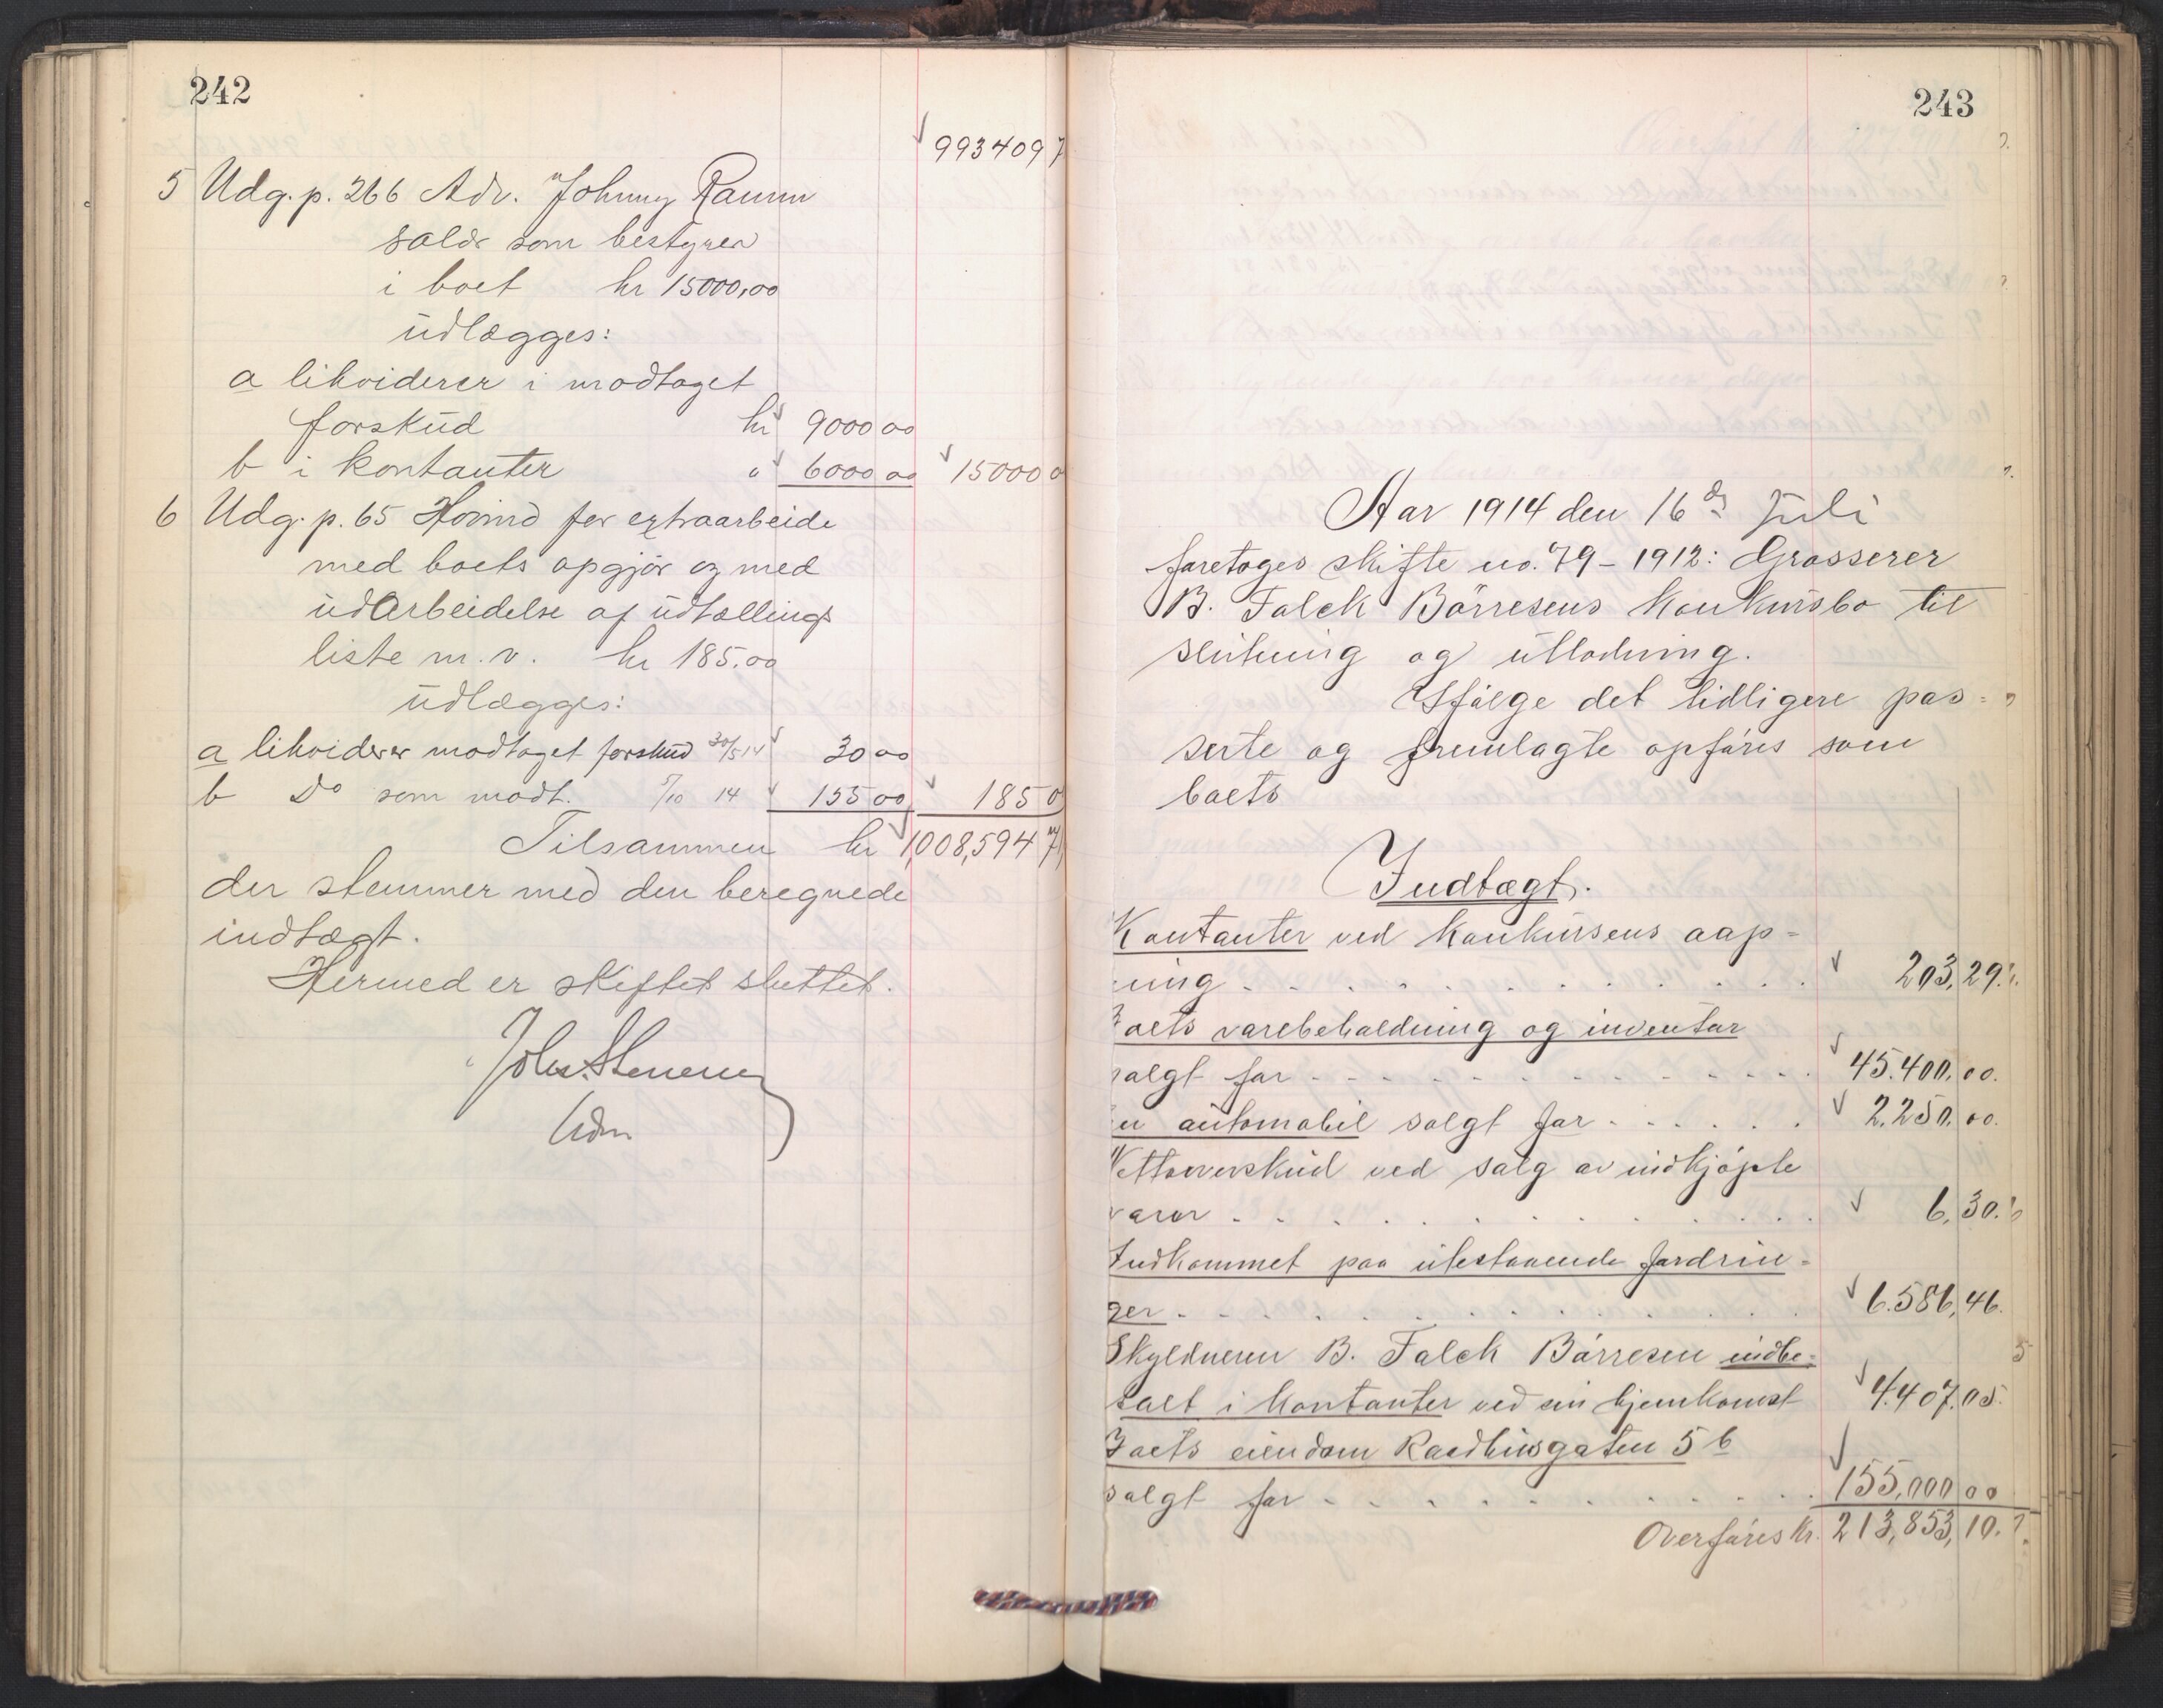 242
993409 7
5 Udg. p. 266 Adv. Johnny Ramm
salær som bestyrer
i boet kr 15000,00
udlægges:
a likviderer i modtaget
forskud kr 9000 00
b i kontanter " 6000 00 15000 0
6 Udg. p. 65 for extraarbeide
med boets opgjør og med
udarbeidelse af udtællings
liste m. v. kr 185.00
udlægges:
a likviderer modtaget forskud 30/5 14 30 00
b Do som modt. 5/10 14 155 00 185 0
Tilsammen kr 1,008,594 7
der stemmer med den beregnede
indtægt.
Hermed er skiftet sluttet.
243
Aar 1914 den 16de Juli
foretoges skifte no. 79 - 1912: Grosserer
B. Falck Börresens konkursbo til
slutning og utlodning.
Ifölge det tidligere pas=
serte og fremlagte opföres som
boets
Indtægt.
Kontanter ved konkursens aap=
ning . . . 203,29.
Boets varebeholdning og inventar
solgt for . . . 45.400,00.
En automobil solgt for . . . 2.250,00.
Nettooverskud ved salg av indkjöpte
varer . . . 6,30.
Indkommet paa utestaaende fordrin=
ger . . . 6.586,46.
Skyldneren B. Falck Börresen indbe=
talt i kontanter ved sin hjemkomst 4.407,05.
Boets eiendom Raadhusgaten 5 b
solgt for . . . 155,000 00
Overföres kr. 213,853,10.